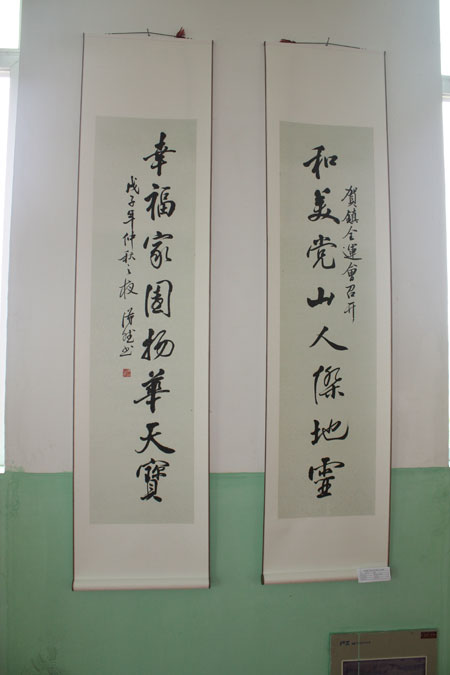 賀鎮全運會召开
和美党山人傑地靈
幸福家園物華天寶
戊子年仲秋之夜